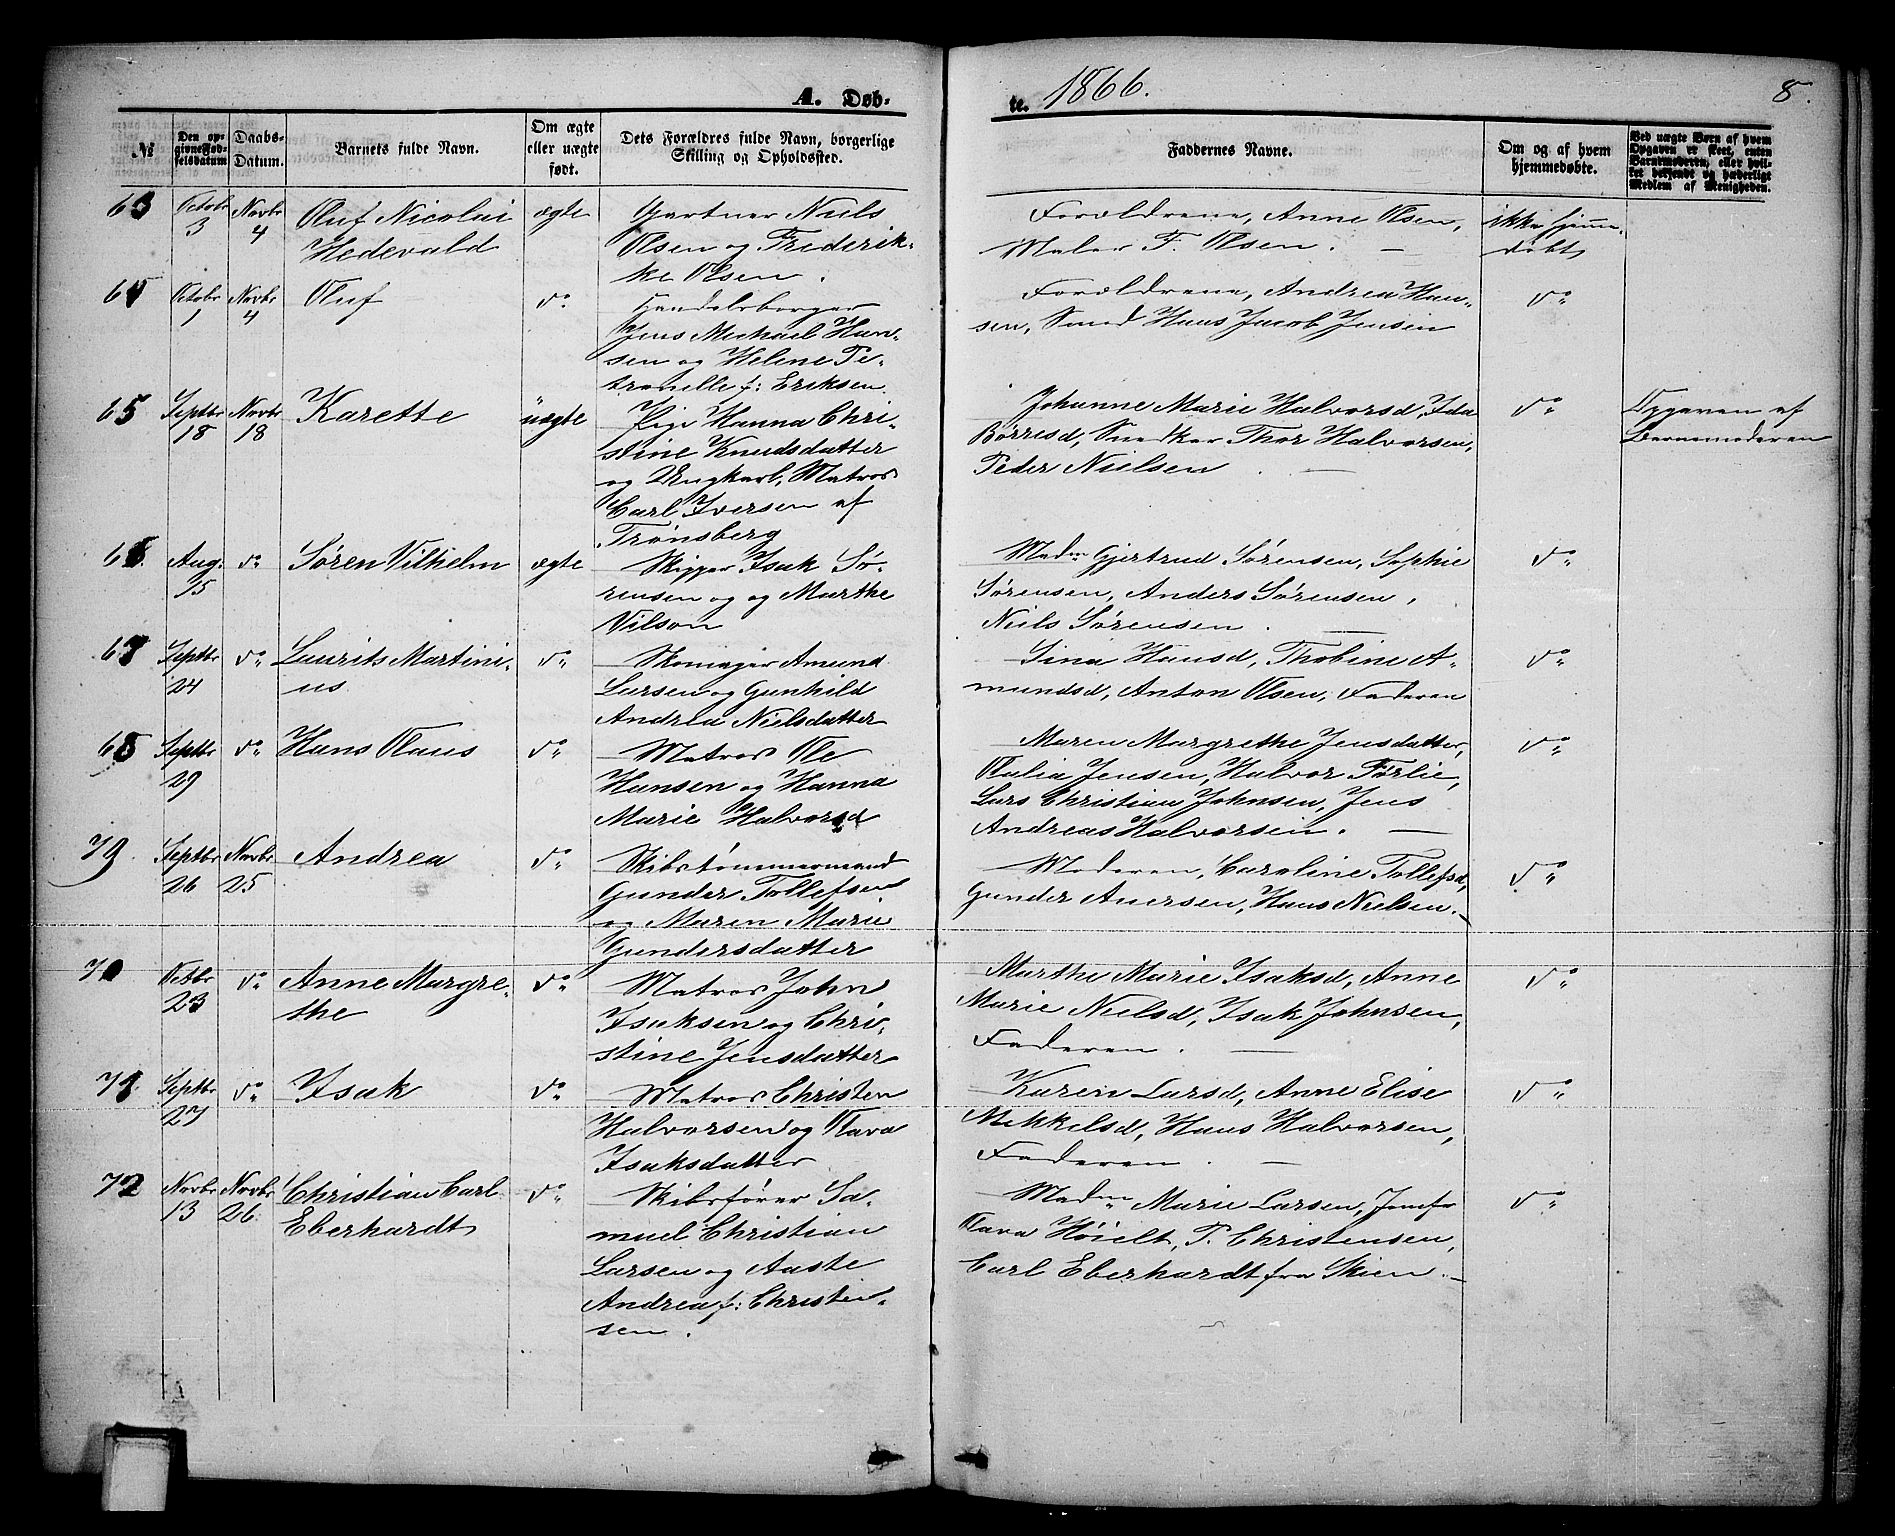 A. Døb-
te. 1866.
8.
№
Den opgivne Fødselsdatum
Daabs-Datum.
Barnets fulde Navn.
Om ægte eller uægte født.
Dets Forældres fulde Navn, borgerlige Stilling og Opholdssted.
Faddernes Navne.
Om og af hvem hjemmedøbte.
Ved uægte Børn af hvem Opgaven er skeet, enten Barnemoderen, eller hvilket bekjendt og hæderligt Medlem af Menigheden.
63 Octobr 3 Novbr 4 Oluf Nicolai Hedevald ægte
Gartner Niels
Olsen og Frederik-
ke Olsen.
Forældrene, Anne Olsen,
Maler F. Olsen. —
ikke hjemme-
døbt
64 Octobr 1 Novbr 4 Oluf do
Handelsborger
Jens Michael Han-
sen og Helene Pe-
tronelle f: Eriksen
Forældrene, Andrea Han-
sen, Smed Hans Jacob Jensen
do
65 Septbr 18 Novbr 18 Karette uægte
Pige Hanna Chri-
stine Knudsdatter
og Ungkarl, Matros
Carl Iversen af
Trønsberg
Johanne Marie Halvorsd, Ida
Børresd, Snedker Thor Halvorsen,
Peder Nielsen. —
do
Opgaven af
Barnemoderen
66 Aug. 15 do Søren Vilhelm ægte
Skipper Isak Sø-
rensen og og Marthe
Vilson
Madm Gjertrud Sørensen, Sophie
Sørensen, Anders Sørensen,
Niels Sørensen. —
do
67 Septbr 24 do Laurits Martini-
us do
Skomager Amund
Larsen og Gunhild
Andrea Nielsdatter
Sina Hansd, Thobine A-
mundsd, Anton Olsen, Faderen
do
68 Septbr 29 do Hans Olaus do
Matros Ole
Hansen og Hanna
Marie Halvorsd
Maren Margrethe Jensdatter,
Olalia Jensen, Halvor Førlie,
Lars Christian Johnsen, Jens
Andreas Halvorsen. —
do
Septbr 26 Novbr 25 Andrea do
Skibstømmermand
Gunder Tollefsen
og Maren Marie
Gundersdatter
Moderen, Caroline Tollefsd,
Gunder Anersen, Hans Nielsen. —
do
70 Octbr 23 do Anne Margre-
the do
Matros John
Isaksen og Chri-
stine Jensdatter
Marthe Marie Isaksd, Anne
Marie Nielsd, Isak Johnsen,
Faderen. —
do
71 Septbr 27 do Isak do
Matros Christen
Halvorsen og Olava
Isaksdatter
Karen Larsd, Anne Elise
Mikkelsd, Hans Halvorsen,
Faderen. —
do
72 Novbr 13 Novbr 26 Christian Carl
Eberhardt do
Skibsfører Sa-
muel Christian
Larsen og Aaste
Andrea f: Christen-
sen.
Madm Marie Larsen, Jomfr
Olava Høielt, P. Christensen,
Carl Eberhardt fra Skien. —
do